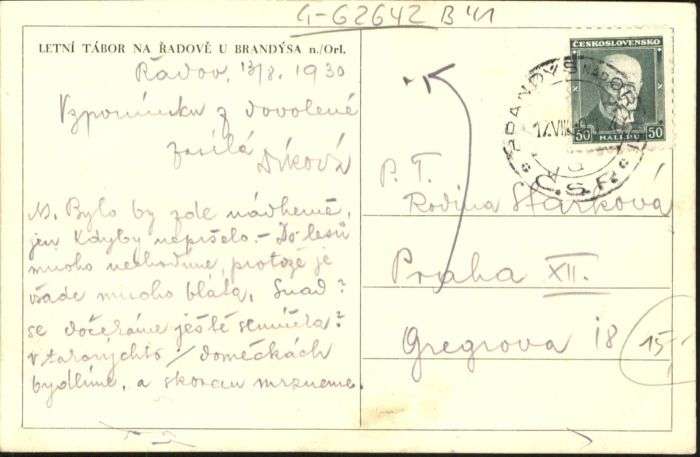 G-62642 B 41
LETNÍ TÁBOR NA ŘADOVĚ U BRANDÝSA n./Orl.
Řadov, 13/8. 1930
Vzpomínku z dovolené
zasílá
Díková
N. Bylo by zde nádherně,
jen kdyby nepršelo. – Do lesů
mnoho nechodíme, protože je
všade mnoho bláta. Snad?
se dočkáme ještě sluníčka?
v takovýchto domečkách
bydlíme, a skorem mrzneme.
ČESKOSLOVENSKO
50 HALÉŘŮ 50
BRANDÝS NAD ORL.
17.VIII.
Č.S.R.
P. T.
Rodina Stárková
Praha XII.
Gregrova 18
15